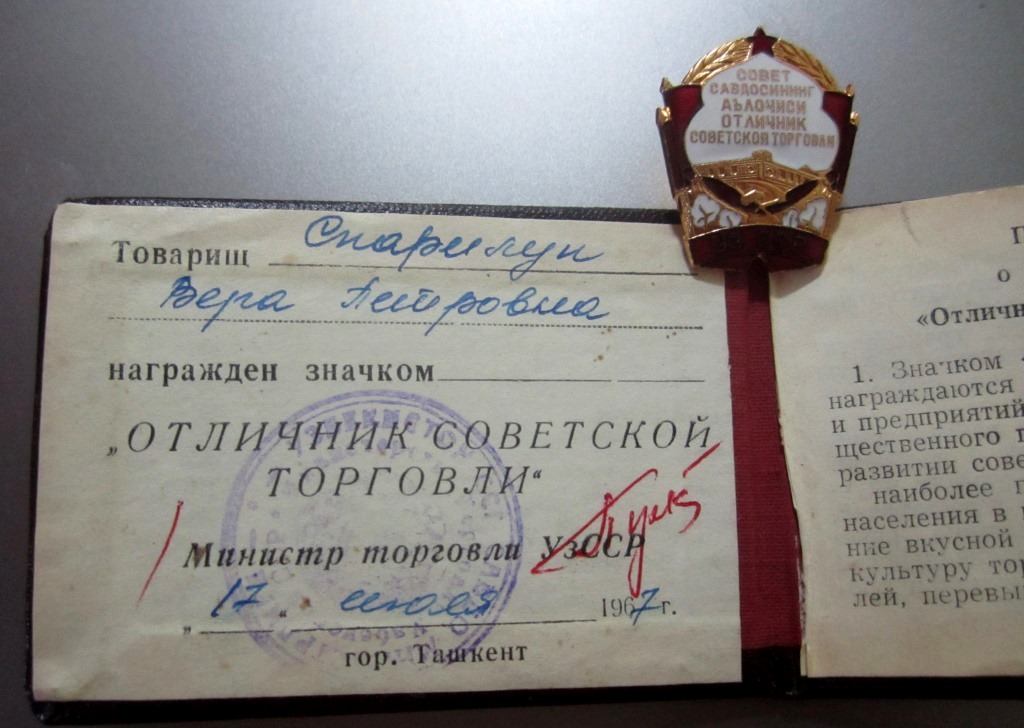 СОВЕТ
САВДОСИНИНГ
АЪЛОЧИСИ
ОТЛИЧНИК
СОВЕТСКОЙ ТОРГОВЛИ
Товарищ
Вера Петровна
награжден значком
„ОТЛИЧНИК СОВЕТСКОЙ
ТОРГОВЛИ“
Министр торговли УзССР
„17„ июля 1967г.
гор. Ташкент
П
о
«Отличн
1. Значком
награждаются
и предприятий
щественного п
развитии сове
наиболее п
населения в
ние вкусной
культуру тор
лей, перевы